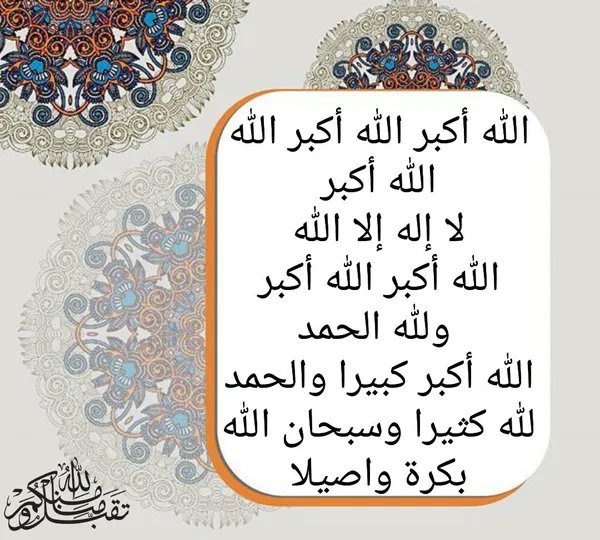 الله أكبر الله أكبر الله
الله أكبر
لا إله إلا الله
الله أكبر الله أكبر
ولله الحمد
الله أكبر كبيرا والحمد
لله كثيرا وسبحان الله
بكرة واصيلا
تقبل الله منا ومنكم